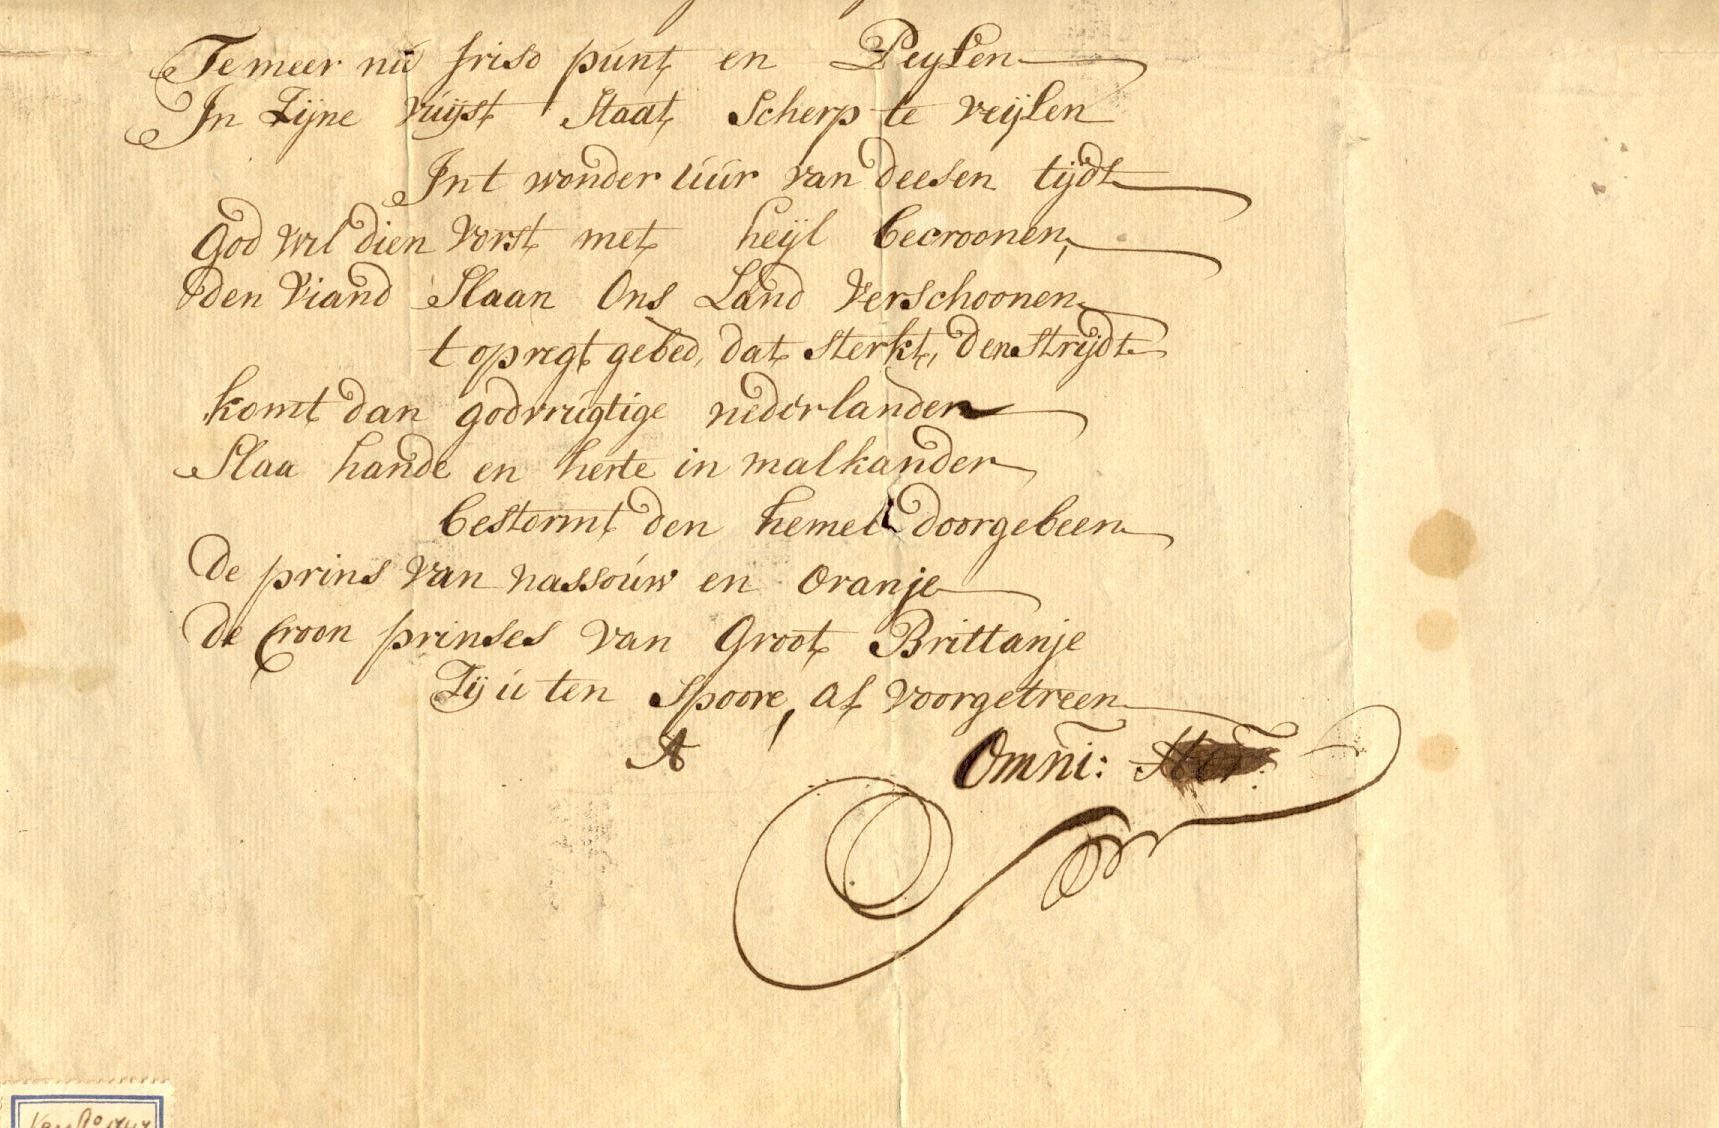 Temeer nú friso púnt en Peylen
In Zijne vúijst Staat Scherp te veijlen
In t wonder úúr van deesen tijdt
God wil dien Vorst met heijl becroonen,
den Viand Slaan Ons Land Verschoonen
t opregt gebed, dat sterkt, den strijdt
komt dan godvrúgtige nederlanden
Slaa hande en herte in malkander
bestormt den hemel doorgebeen
de prins van nassoúw en oranje
de Croon prinses van Groot Brittanje
Zij ú ten spoore, al voorgetreen
A Omni: